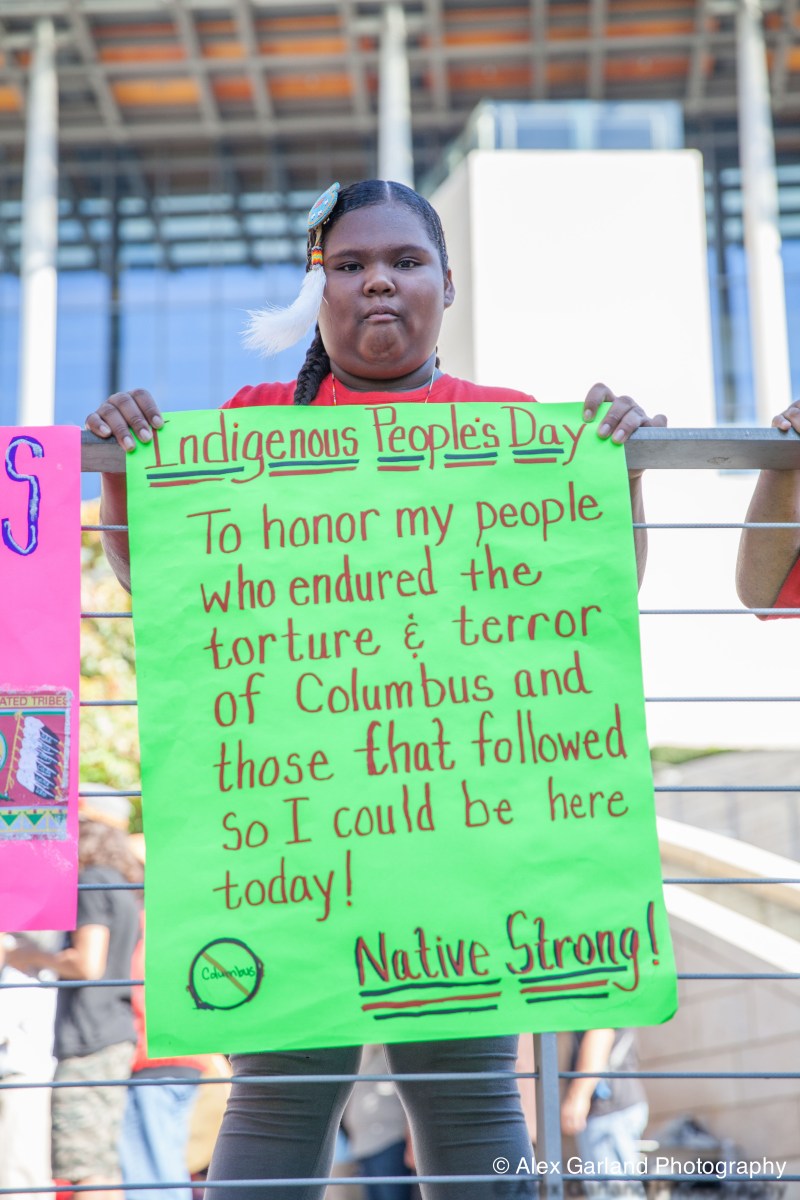 Indigenous People's Day
To honor my people
who endured the
torture & terror
of Columbus and
those that followed
So I could be here
today!
Columbus
Native Strong!
S
ATED TRIBES
© Alex Garland Photography